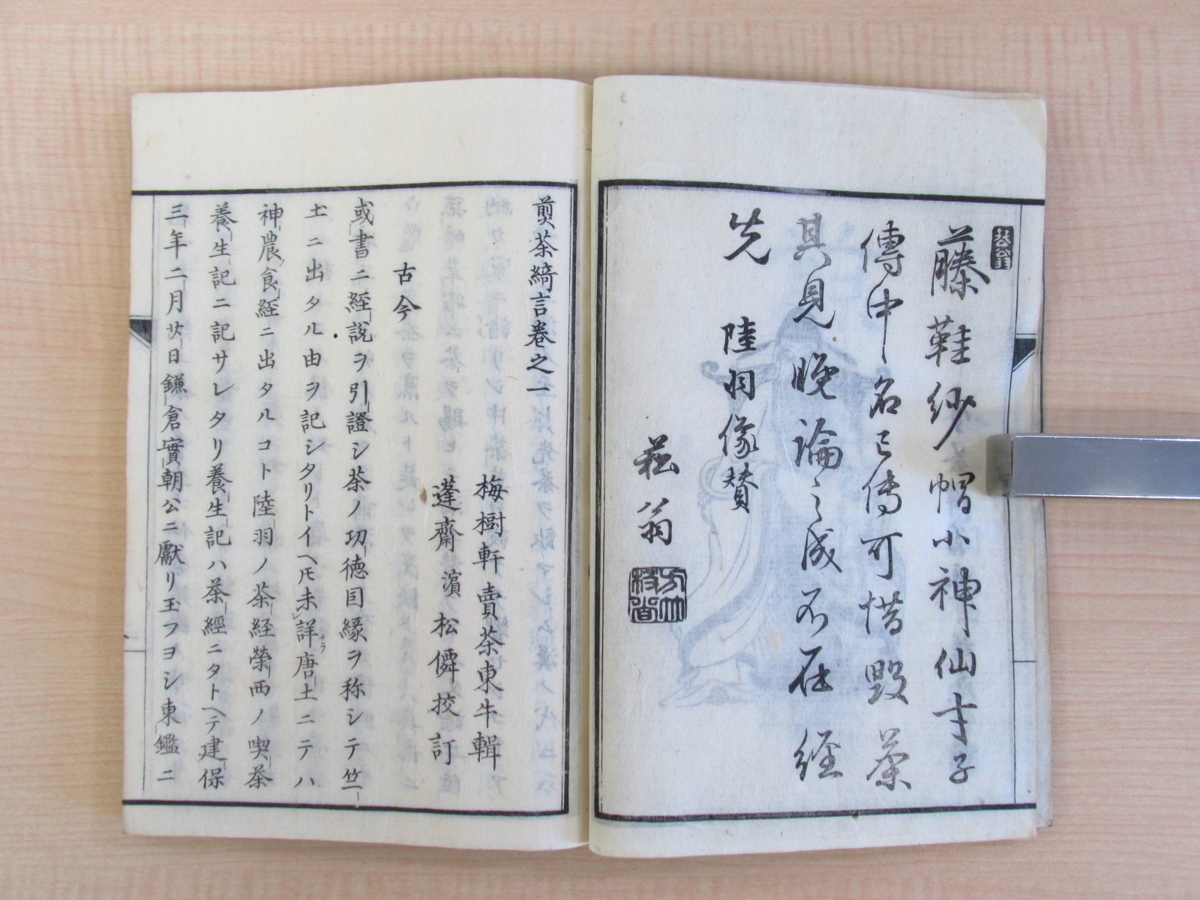 藤鞋紗帽小神仙才子
傳中名已傳可惜毀茶
其見晩論之成不在經
先
陸羽像賛
菘翁
煎茶綺言巻之一
梅樹軒 賣茶東牛輯
蓬齋 濵 松僊挍訂
古今
或書ニ経説ヲ引證シ茶ノ功徳囙縁ヲ称シテ竺
土ニ出タル由ヲ記シタリトイヘ𪜈未詳唐土ニテハ
神農食経ニ出タルコト陸羽ノ茶経榮西ノ喫茶
養生記ニ記サレタリ養生記ハ茶經ニタトヘテ建保
三年二月廿日鎌倉實朝公ニ獻リ玉フヨシ東鑑ニ